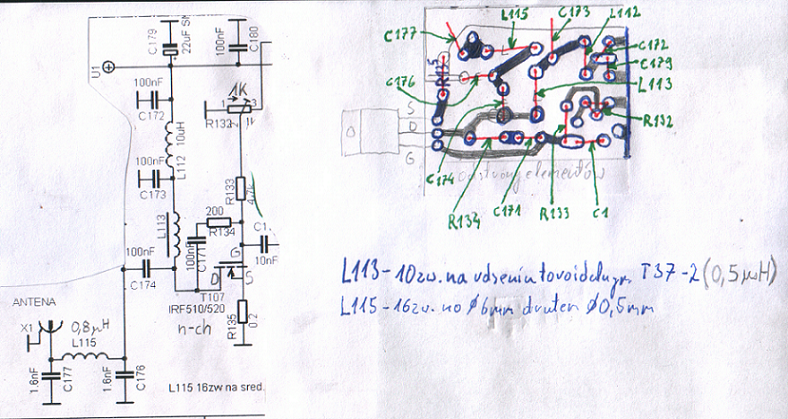 C179
22uF SN
100nF
C180
U1
100nF
C172
L112 10uH
C173
100nF
1K
1 3
R132
R133
4,7k
L113
200
R134
100nF
C171
C1
10nF
G
D
S
100nF
C174
T107
IRF510/520
n-ch
R135
0.2
ANTENA
X1
0,8μH
L115
1.6nF
C177
1.6nF
C176
L115 16zw na sred.
C177
L115
C173
L112
C172
C179
R135
C176
L113
S
D
G
R132
C174
R134
C171
R133
C1
L113-10zw. na rdzeniu toroidalnym T37-2 (0,5μH)
L115-16zw. na ø6mm drutem ø0,5mm